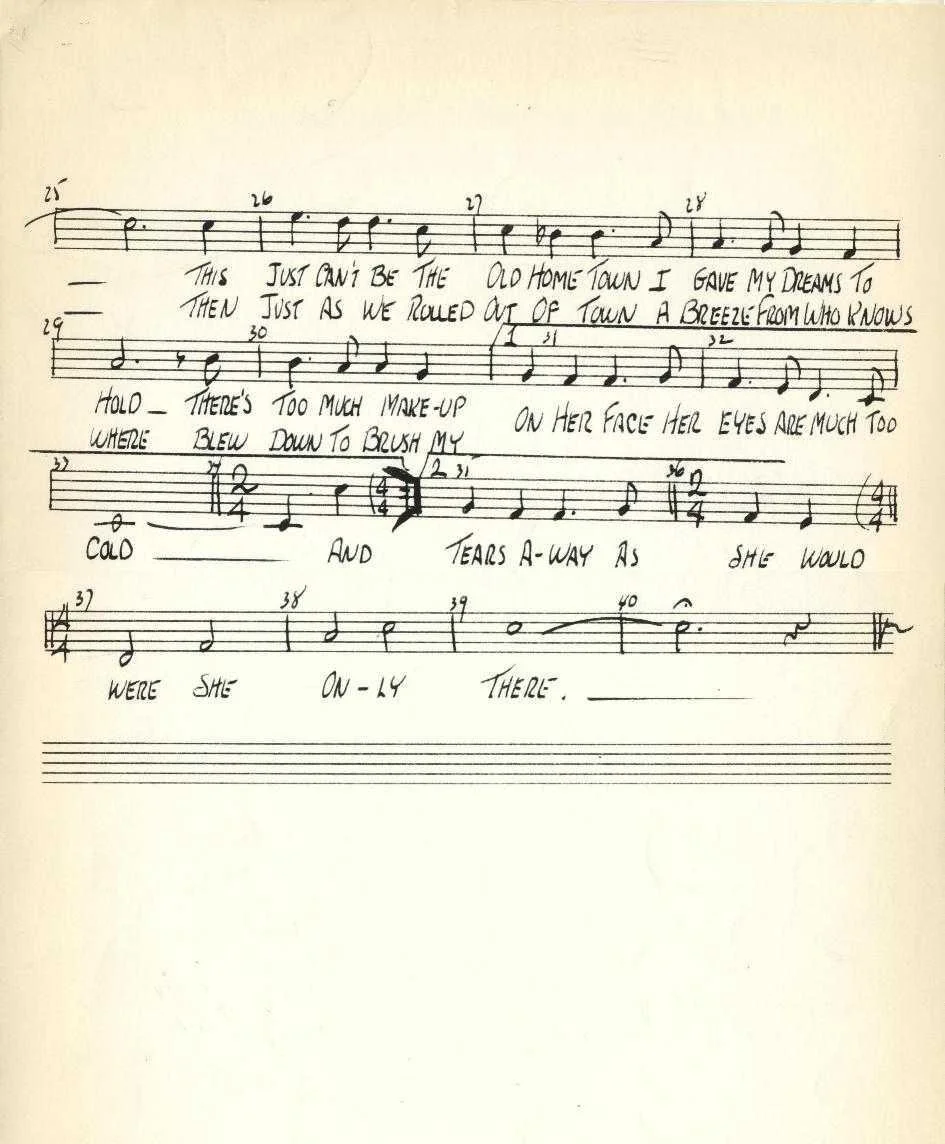 25 26 27 28
— THIS JUST CAN'T BE THE OLD HOME TOWN I GAVE MY DREAMS TO
— THEN JUST AS WE ROLLED OUT OF TOWN A BREEZE FROM WHO KNOWS
29 30 1 31 32
HOLD — THERE'S TOO MUCH MAKE-UP ON HER FACE HER EYES ARE MUCH TOO
WHERE BLEW DOWN TO BRUSH MY
33 2 4 4 4 2 31 36 2 4 4 4
COLD ____ AND TEARS A-WAY AS SHE WOULD
37 38 39 40
4 4
WERE SHE ON-LY THERE. ____